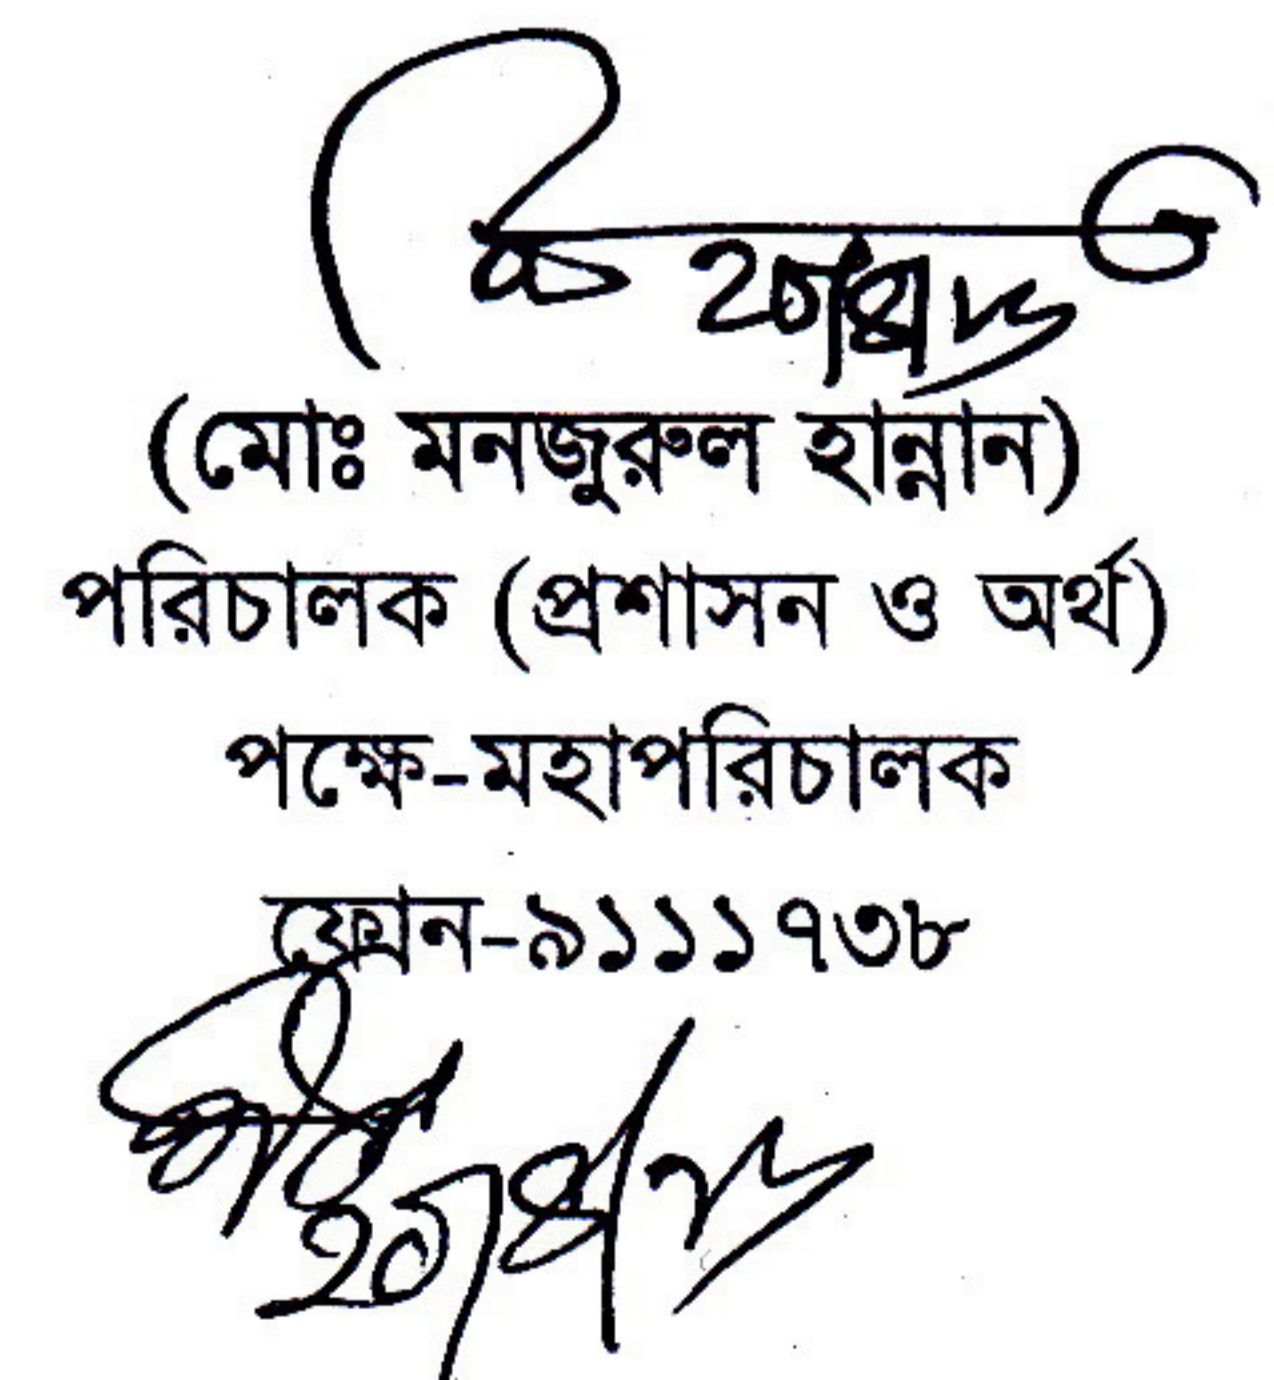 (মোঃ মনজুরুল হান্নান)
পরিচালক (প্রশাসন ও অর্থ)
পক্ষে-মহাপরিচালক
ফোন-৯১১১৭৩৮